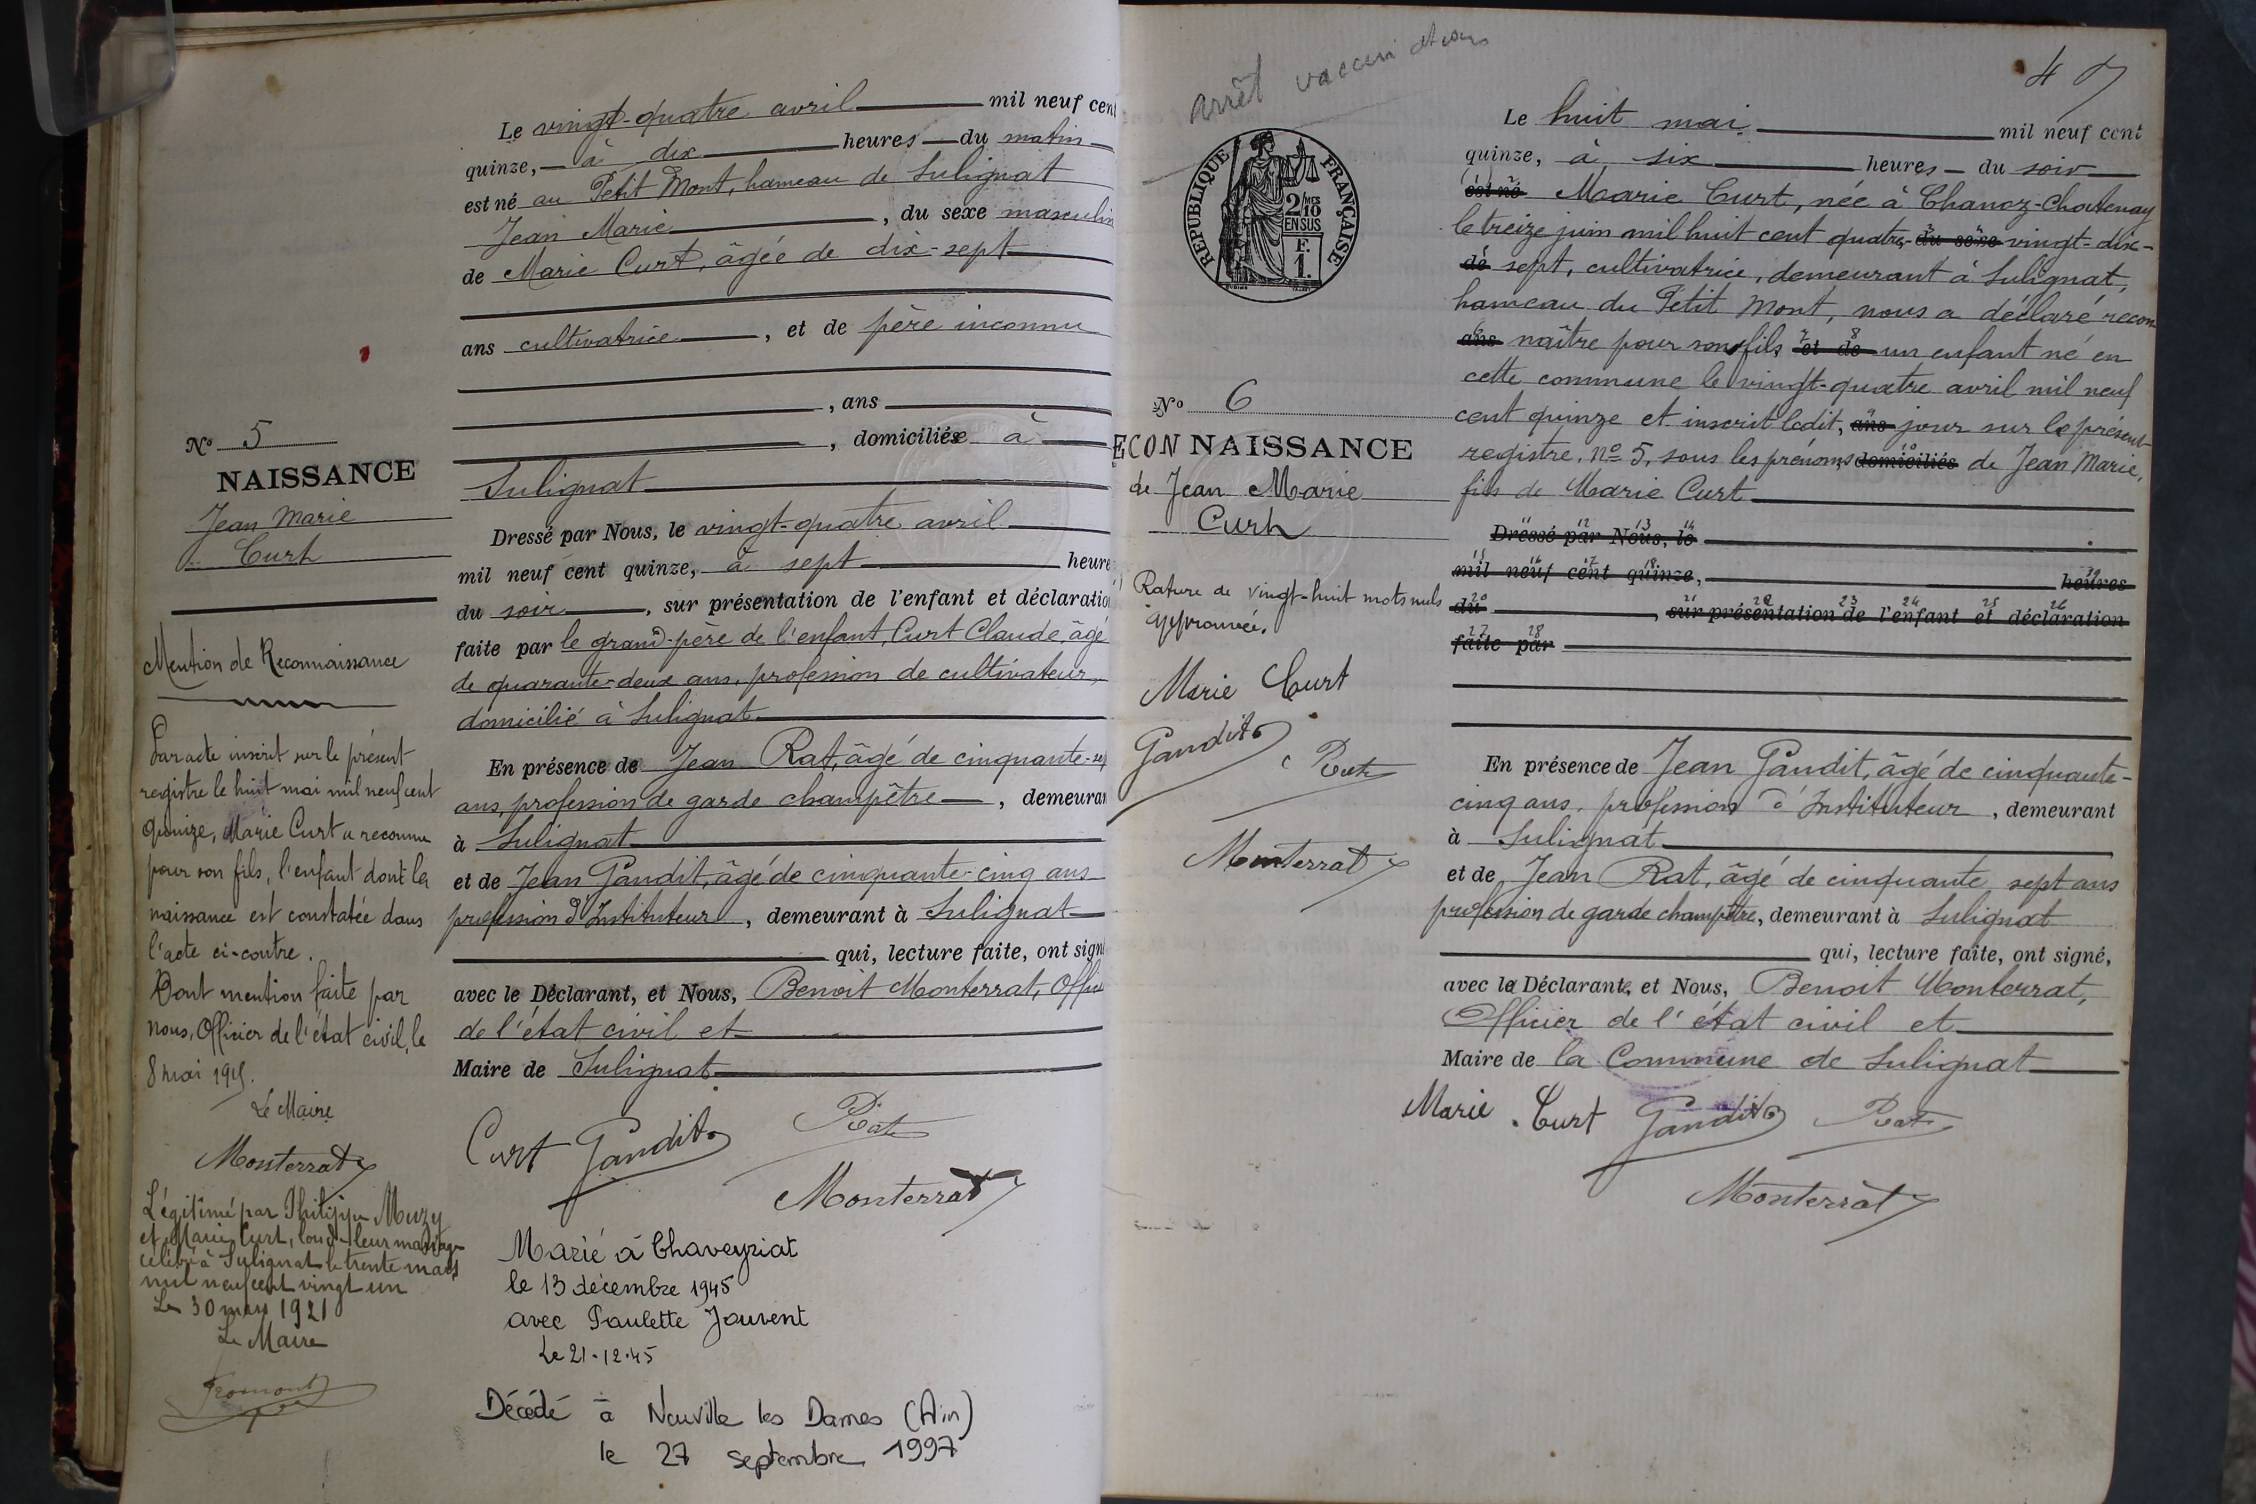 Le vingt-quatre avril mil neuf cent
quinze, à dix heures du matin
est né au Petit Mont, hameau de Sulignat
Jean Marie, du sexe masculin
de Marie Curt, âgée de dix-sept
ans cultivatrice, et de père inconnu
, ans
, domiciliée à
Sulignat
Dressé par Nous, le vingt-quatre avril
mil neuf cent quinze, à sept heure
du soir, sur présentation de l'enfant et déclaratio
faite par le grand-père de l'enfant, Curt Claude, âgé
de quarante-deux ans, profession de cultivateur,
domicilié à Sulignat
En présence de Jean Rat, âgé de cinquante-sep
ans, profession de garde champêtre, demeuran
à Sulignat
et de Jean Gandit, âgé de cinquante-cinq ans
profession d'Instituteur, demeurant à Sulignat
qui, lecture faite, ont sign
avec le Déclarant, et Nous, Benoit Monterrat, Offic
de l'état civil et
Maire de Sulignat
Curt Gandit Rat
Monterrat
Marié à Chaveyriat
le 13 décembre 1945
avec Paulette Jouvent
Le 21-12-45
Décédé à Neuville les Dames (Ain)
le 27 septembre 1997
No 5
NAISSANCE
Jean Marie
Curt
Mention de Reconnaissance
Par acte inscrit sur le présent
registre le huit mai mil neuf cent
quinze, Marie Curt a reconnu
pour son fils, l'enfant dont la
naissance est constatée dans
l'acte ci-contre.
Dont mention faite par
nous, Officier de l'état civil, le
8 mai 1915.
Le Maire
Monterrat
Légitimé par Philippe Muzy
et Marie Curt, lors de leur mariage
célébré à Sulignat le trente mars
mil neuf cent vingt un
Le 30 mars 1921
Le Maire
Fromont
arrêt vaccinations
RÉPUBLIQUE FRANÇAISE
2/10 MES
EN SUS
F.
1.
No 6
ECONNAISSANCE
de Jean Marie
Curt
Rature de vingt-huit mots nuls
approuvée.
Marie Curt
Gandit Rat
Monterrat
4
Le huit mai mil neuf cent
quinze, à six heures du soir
est né Marie Curt, née à Chanoz-Chatenay
le treize juin mil huit cent quatre- du sexe vingt-dix-
de sept, cultivatrice, demeurant à Sulignat,
hameau du Petit Mont, nous a déclaré recon
ans naître pour son fils et de un enfant né en
cette commune le vingt-quatre avril mil neuf
cent quinze et inscrit ledit, ans jour sur le présent
registre, no 5, sous les prénoms domiciliés de Jean Marie,
fils de Marie Curt
11 12 13 14
Dressé par Nous, le
15 16 17 18 19
mil neuf cent quinze, heures
20 21 22 23 24 25 26
du, sur présentation de l'enfant et déclaration
27 28
faite par
En présence de Jean Gandit, âgé de cinquante-
cinq ans, profession d'Instituteur, demeurant
à Sulignat
et de Jean Rat, âgé de cinquante sept ans
profession de garde champêtre, demeurant à Sulignat
qui, lecture faite, ont signé,
avec la Déclarante, et Nous, Benoit Monterrat,
Officier de l'état civil et
Maire de la Commune de Sulignat
Marie Curt Gandit Rat
Monterrat